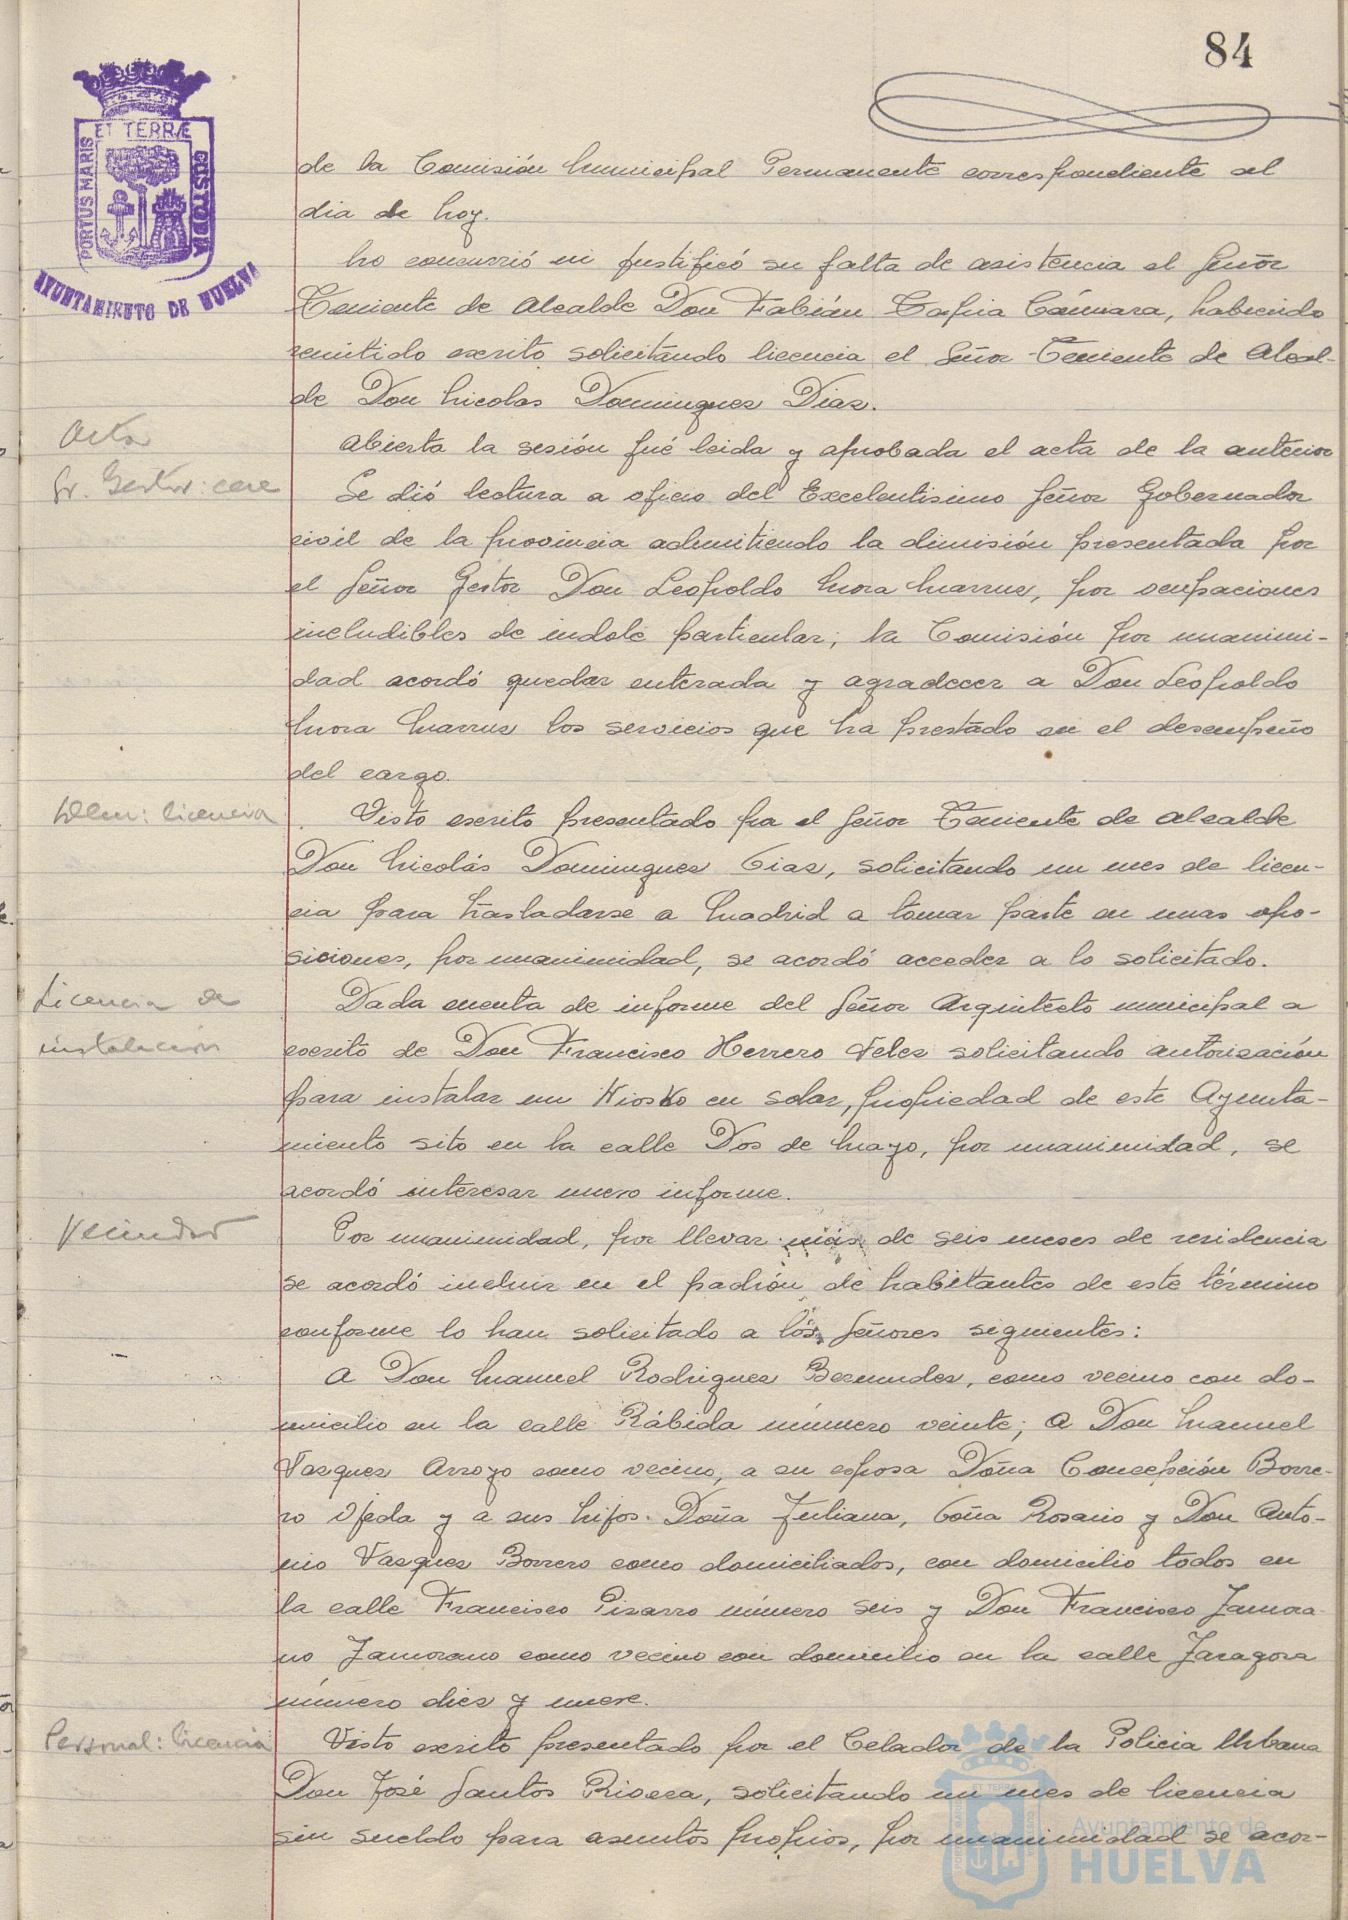 84
ET TERRÆ
PORTUS MARIS
CUSTODIA
AYUNTAMIENTO DE HUELVA
de la Comisión Municipal Permanente correspondiente al
dia de hoy.
No concurrió ni justificó su falta de asistencia el Señor
Teniente de Alcalde Don Fabián Tapia Cámara, habiendo
remitido escrito solicitando licencia el Señor Teniente de Alcal-
de Don Nicolas Dominguez Diaz.
Acta
Abierta la sesión fué leida y aprobada el acta de la anterior
Sr. Gestor: cese
Se dió lectura a oficio del Excelentisimo Señor Gobernador
civil de la provincia admitiendo la dimisión presentada por
el Señor Gestor Don Leopoldo Mora, por ocupaciones
includibles de indole particular; la Comisión por unanimi-
dad acordó quedar enterada y agradecer a Don Leopoldo
Mora los servicios que ha prestado en el desempeño
del cargo.
Idem: licencia
Visto escrito presentado por el Señor Teniente de Alcalde
Don Nicolás Dominguez Diaz, solicitando un mes de licen-
cia para trasladarse a Madrid a tomar parte en unas opo-
siciones, por unanimidad, se acordó acceder a lo solicitado.
Licencia de
instalación
Dada cuenta de informe del Señor Arquitecto municipal a
escrito de Don Francisco Herrero Velez solicitando autorización
para instalar un Kiosko en solar, propiedad de este Ayunta-
miento sito en la calle Dos de Mayo, por unanimidad, se
acordó interesar nuevo informe.
Vecindad
Por unanimidad, por llevar más de seis meses de residencia
se acordó incluir en el padrón de habitantes de este término
conforme lo han solicitado a los Señores siguientes:
A Don Manuel Rodriguez Bermudez, como vecino con do-
micilio en la calle Rábida número veinte; a Don Manuel
Vazquez Arroyo como vecino, a su esposa Doña Concepción Borre-
ro Ojeda y a sus hijos. Doña Juliana, Doña Rosario y Don Anto-
nio Vazquez Borrero como domiciliados, con domicilio todos en
la calle Francisco Pizarro número seis y Don Francisco Zamora-
no Zamorano como vecino con domicilio en la calle Zaragoza
número diez y nueve.
Personal: licencia
Visto escrito presentado por el Celador de la Policia Urbana
Don José Santos Rivera, solicitando un mes de licencia
sin sueldo para asuntos propios, por unanimidad se acor-
Ayuntamiento de
HUELVA